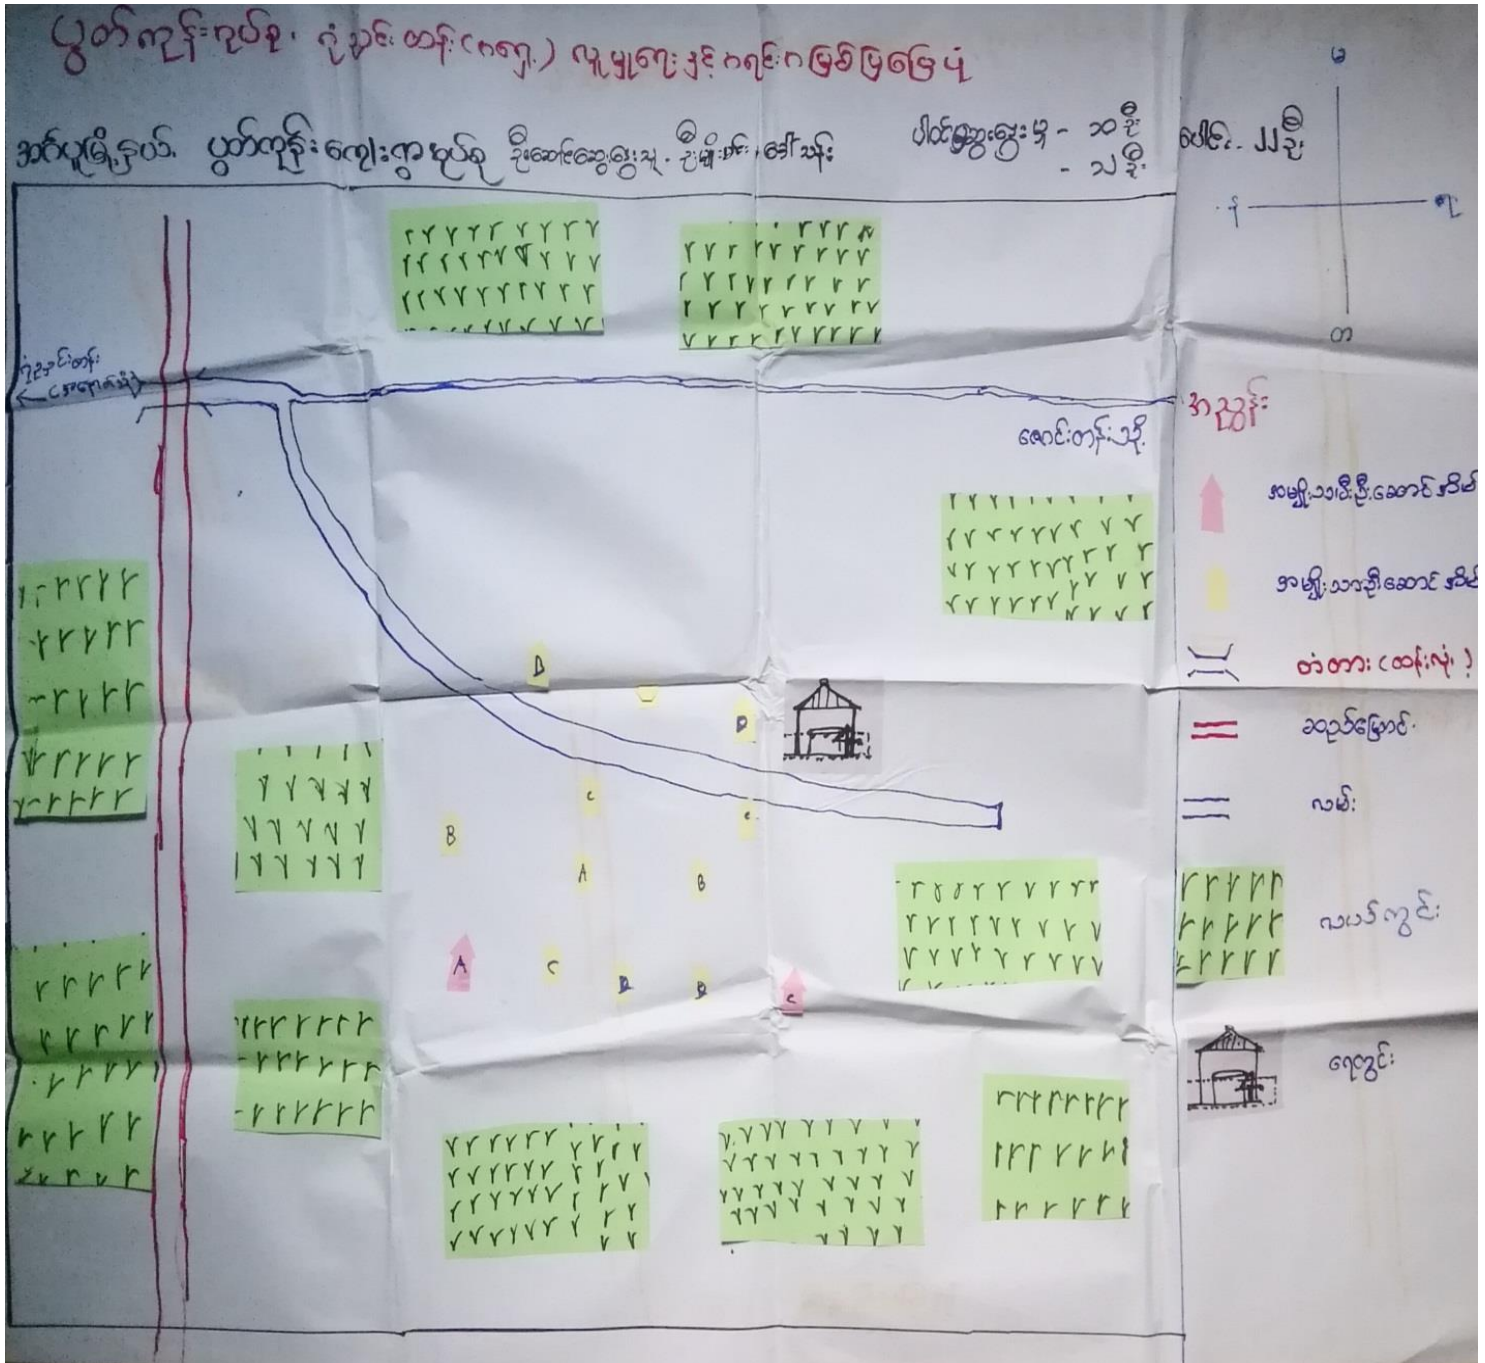 ပွတ်ကုန်းအုပ်စု၊ ဂုံညှင်းတန်း(အရှေ့) လူမှုရေးနှင့်အရင်းအမြစ်ပြမြေပုံ
အင်္ဂပူမြို့နယ်၊ ပွတ်ကုန်းကျေးရွာအုပ်စု ဦးဆောင်ဆွေးနွေးသူ
ပါဝင်ဆွေးနွေးမှု -
ပေါင်း - ၂၂ ဦး
မ
န
ရ
တ
ဂုံညှင်းတန်း
(အနောက်သို့)
ဇောင်းတန်းသို့
အညွှန်း
အမျိုးသမီးဦးဆောင်အိမ်
အမျိုးသားဦးဆောင်အိမ်
တံတား (ထန်းလုံး)
ဆည်မြောင်း
လမ်း
လယ်ကွင်း
ရေတွင်း
D
D
C
C
B
A
B
A
C
C